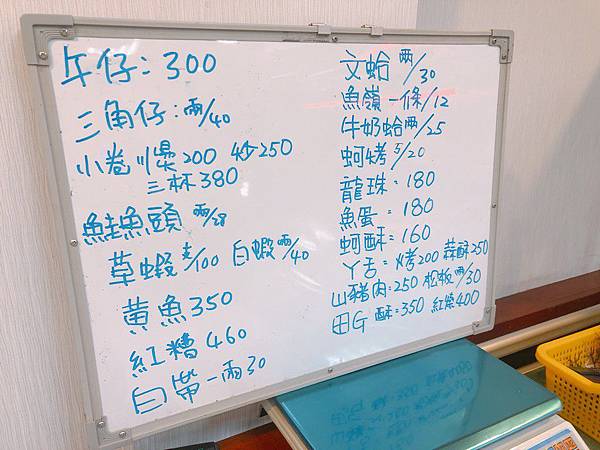 午仔：300
三角仔：兩/40
小卷 燙200 炒250
三杯380
鮭魚頭 兩/28
草蝦 支/100 白蝦 兩/40
黃魚350
紅糟460
白帶一兩30
文蛤 兩/30
魚嶺一條/12
牛奶蛤 兩/25
蚵烤 5/20
龍珠：180
魚蛋：180
蚵酥：160
丫舌：烤200 蒜酥250
山豬肉：250 松板 兩/30
田G 酥：350 紅燒400